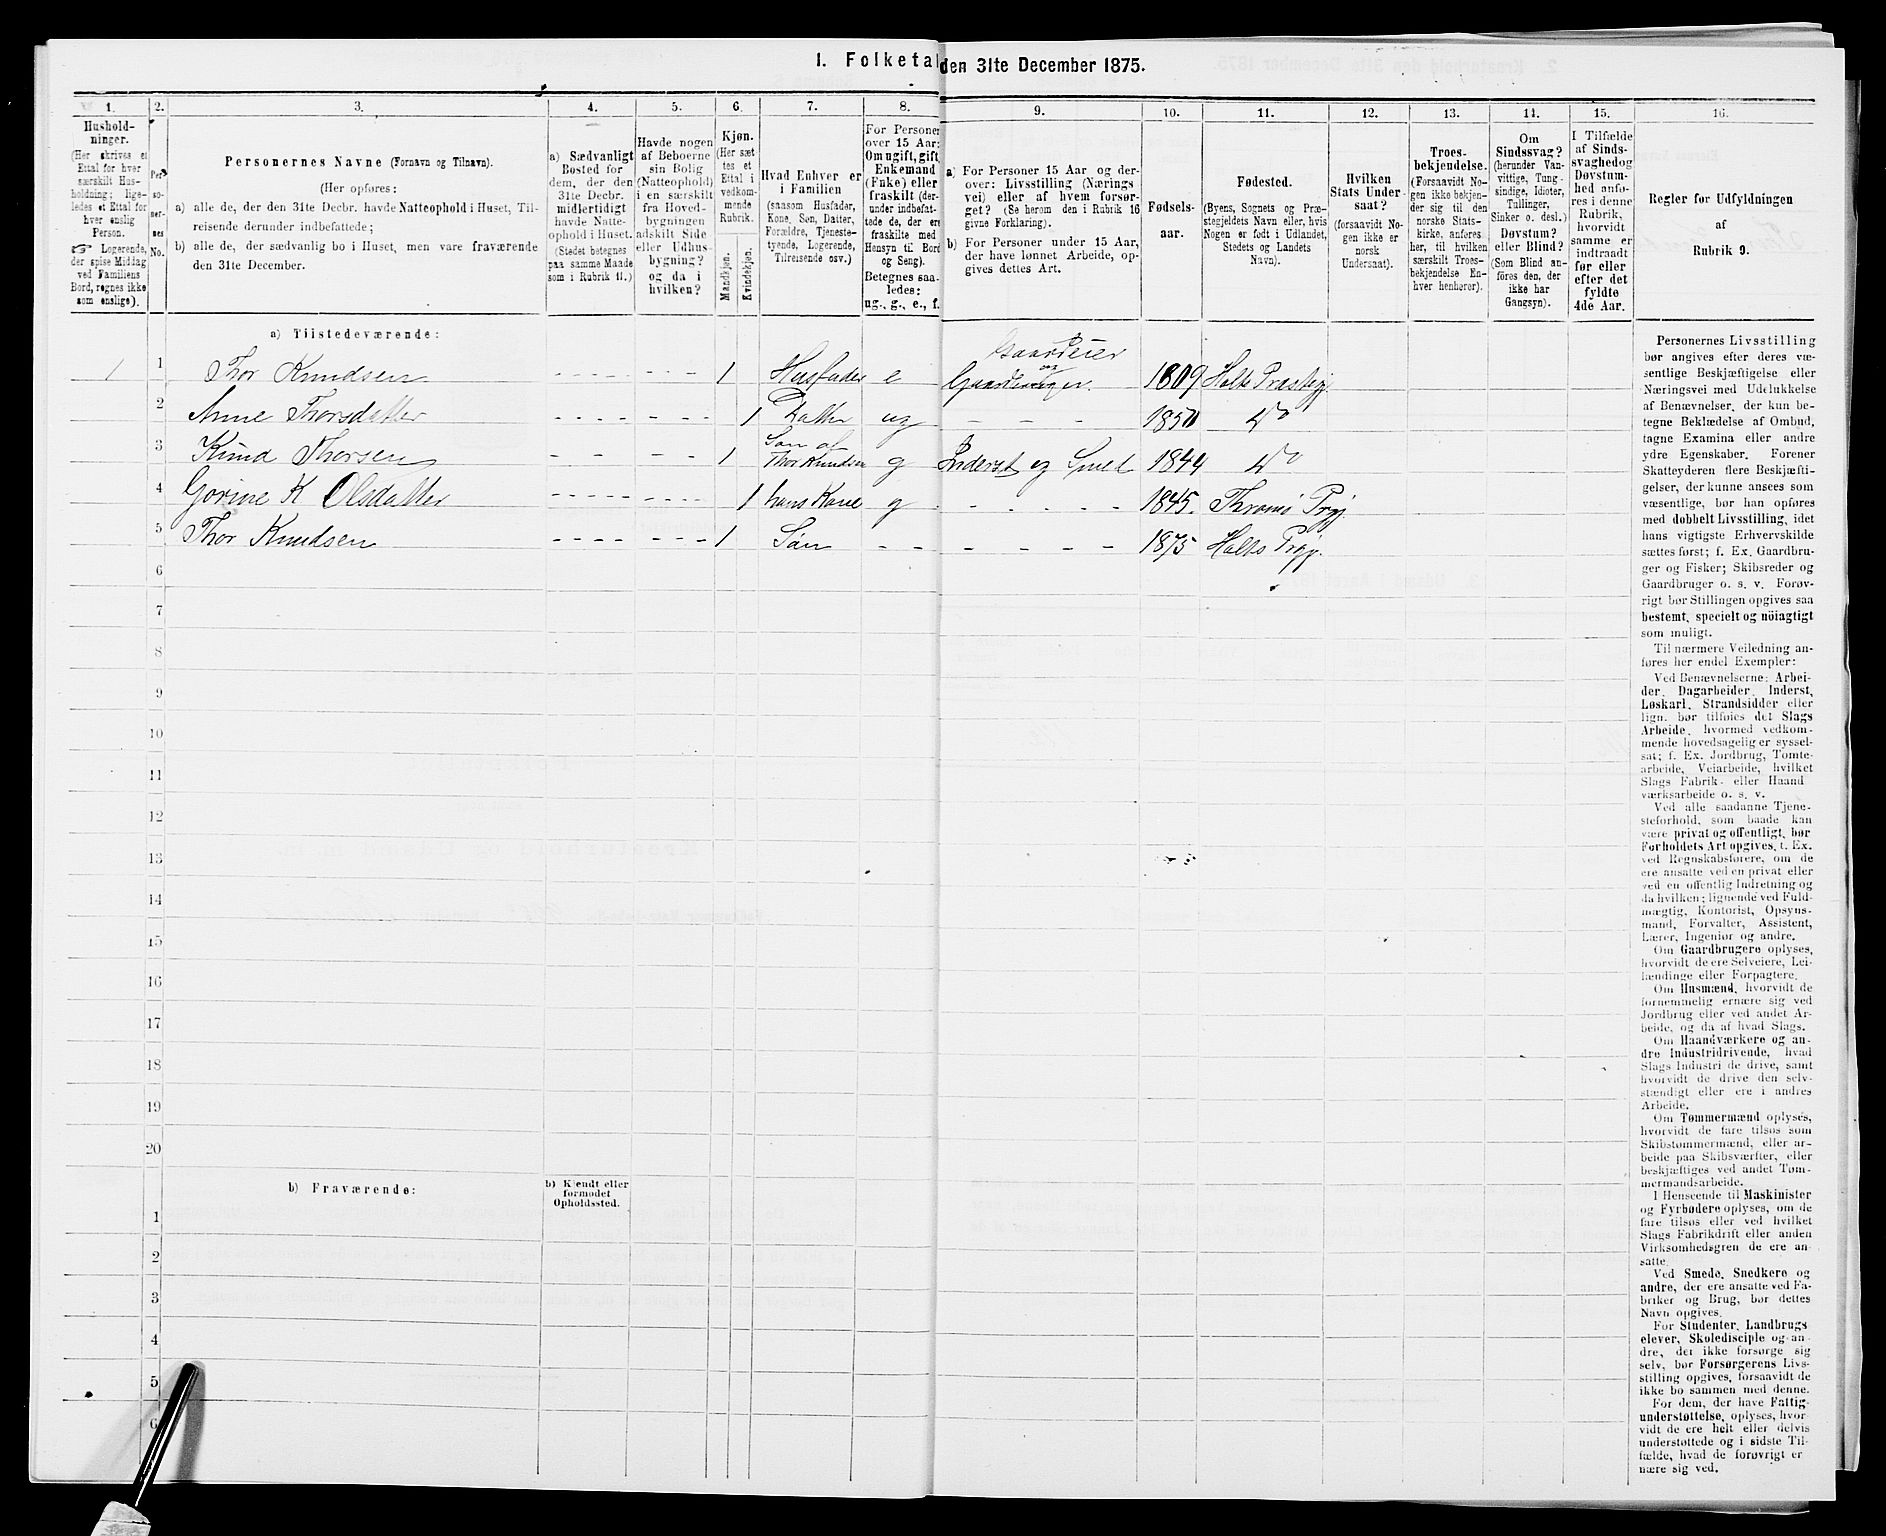 I. Folketal den 31te December 1875.
1. 2. 3. 4. 5. 6. 7. 8. 9. 10. 11. 12. 13. 14. 15. 16.
Hushold-
ninger.
(Her skrives et
Ettal for hver
særskilt Hus-
holdning; lige-
ledes et Ettal for
hver enslig
Person.
☞ Logerende,
der spise Middag
ved Familiens
Bord, regnes ikke
som enslige).
Per-
so-
ner-
nes
No.
Personernes Navne (Fornavn og Tilnavn).
(Her opføres:
a) alle de, der den 31te Decbr. havde Natteophold i Huset, Til-
reisende derunder indbefattede;
b) alle de, der sædvanlig bo i Huset, men vare fraværende
den 31te December.
a) Sædvanligt
Bosted for
dem, der den
31te Decbr.
midlertidigt
havde Natte-
ophold i Huset.
(Stedet betegnes
paa samme Maade
som i Rubrik 11.)
Havde nogen
af Beboerne
sin Bolig
(Natteophold)
i en særskilt
fra Hoved-
bygningen
adskilt Side
eller Udhus-
bygning?
og da i
hvilken?
Kjøn.
(Her sæt
tes et
Ettal i
vedkom-
mende
Rubrik.
Mandkjøn.
Kvindekjøn.
Hvad Enhver er
i Familien
(saasom Husfader,
Kone, Søn, Datter,
Forældre, Tjeneste-
tyende, Logerende,
Tilreisende osv.)
For Personer
over 15 Aar:
Om ugift, gift,
Enkemand
(Enke) eller
fraskilt (der-
under indbefat-
tede de, der ere
fraskilte med
Hensyn til Bord
og Seng).
Betegnes saa-
ledes:
ug., g., e., f.
a) For Personer 15 Aar og der-
over: Livsstilling (Nærings
vei) eller af hvem forsør-
get? (Se herom den i Rubrik 16
givne Forklaring).
b) For Personer under 15 Aar,
der have lønnet Arbeide, op-
gives dettes Art.
Fødsels-
aar.
Fødested.
(Byens, Sognets og Præ-
stegjeldets Navn eller, hvis
Nogen er født i Udlandet,
Stedets og Landets
Navn).
Hvilken
Stats Under-
saat?
(forsaavidt No-
gen ikke er
norsk
Undersaat).
Troes-
bekjendelse.
(Forsaavidt No-
gen ikke bekjen-
der sig til den
norske Stats-
kirke, anføres
her, til hvilken
særskilt Troes-
bekjendelse En-
hver henhører).
Om
Sindssvag?
(herunder Van-
vittige, Tung-
sindige, Idioter,
Tullinger,
Sinker o. desl.)
Døvstum?
eller Blind?
(Som Blind an-
føres den, der
ikke har
Gangsyn).
I Tilfælde
af Sinds-
svaghedog
Døvstum-
hed anfø-
res i denne
Rubrik,
hvorvidt
samme er
indtraadt
før eller
efter det
fyldte
4de Aar.
Regler for Udfyldningen
af
Rubrik 9.
a) Tilstedeværende:
1 1 Thor Knudsen 1 Husfader e Gaardeier og Gaardbruger. 1809 Holts Præstegj
2 Anne Thorsdatter 1 Datter ug 1850 Do
3 Knud Thorsen 1 Søn af Thor Knudsen g Inderst og Smed 1844 Do
4 Gorine K Olsdatter 1 hans Kone g 1845. Tromø Prgj.
5 Thor Knudsen 1 Søn 1875 Holts Prgj.
6
7
8
9
10
11
12
13
14
15
16
17
18
19
20
b) Fraværende:
b) Kjendt eller
formodet
Opholdssted.
1
2
3
4
5
6
Personernes Livsstilling
bør angives efter deres væ-
sentlige Beskjæftigelse eller
Næringsvei med Udelukkelse
af Benævnelser, der kun be-
tegne Beklædelse af Ombud,
tagne Examina eller andre
ydre Egenskaber. Forener
Skatteyderen flere Beskjæfti-
gelser, der kunne ansees som
væsentlige, bør han opføres
med dobbelt Livsstilling, idet
hans vigtigste Erhvervskilde
sættes først; f. Ex. Gaardbru-
ger og Fisker; Skibsreder og
Gaardbruger o. s. v. Forøv-
rigt bør Stillingen opgives saa
bestemt, specielt og nöiagtigt
som muligt.
Til nærmere Veiledning an-
føres her endel Exempler:
Ved Benævnelserne: Arbei-
der, Dagarbeider, Inderst,
Løskarl, Strandsidder eller
lign. bør tilføies det Slags
Arbeide, hvormed vedkom-
mende hovedsagelig er syssel-
sat; f. Ex. Jordbrug, Tomte-
arbeide, Veiarbeide, hvilket
Slags Fabrik- eller Haand
værksarbeide o. s. v.
Ved alle saadanne Tjene-
steforhold, som baade kan
være privat og offentligt, bør
Forholdets Art opgives, t. Ex.
ved Regnskabsførere, om de
ere ansatte ved en privat eller
ved en offentlig Indretning og
da hvilken; lignende ved Fuld-
mægtig, Kontorist, Opsyns-
mand, Forvalter, Assistent,
Lærer, Ingeniør og andre.
Om Gaardbrugere oplyses,
hvorvidt de ere Selveiere, Lei-
lændinge eller Forpagtere.
Om Husmænd, hvorvidt de
fornemmelig ernære sig ved
Jordbrug eller ved andet Ar-
beide, og da af hvad Slags.
Om Haandværkere og an-
dre Industridrivende, hvad
Slags Industri de drive, samt
hvorvidt de drive den selv-
stændigt eller ere i andres
Arbeide.
Om Tømmermænd oplyses,
hvorvidt de fare tilsøs som
Skibstømmermænd, eller ar-
beide paa Skibsværfter, eller
beskjæftiges ved andet Tøm-
mermandsarbeide.
I Henseende til Maskinister
og Fyrbødere oplyses, om de
fare tilsøs eller ved hvilket
Slags Fabrikdrift eller anden
Virksomhedsgren de ere an-
satte.
Ved Smede, Snedkere og
andre, der ere ansatte ved Fa-
briker og Brug, bør dettes
Navn opgives.
For Studenter, Landbrugs
elever, Skoledisciple og an-
dre, der ikke forsørge sig
selv, bør Forsørgerens Livs-
stilling opgives, forsaavidt de
ikke bo sammen med denne.
For dem, der have Fattig-
understøttelse, oplyses, hvor-
vidt de ere helt eller delvis
understøttede og i sidste Til-
fælde, hvad de forøvrigt er
nære sig ved.